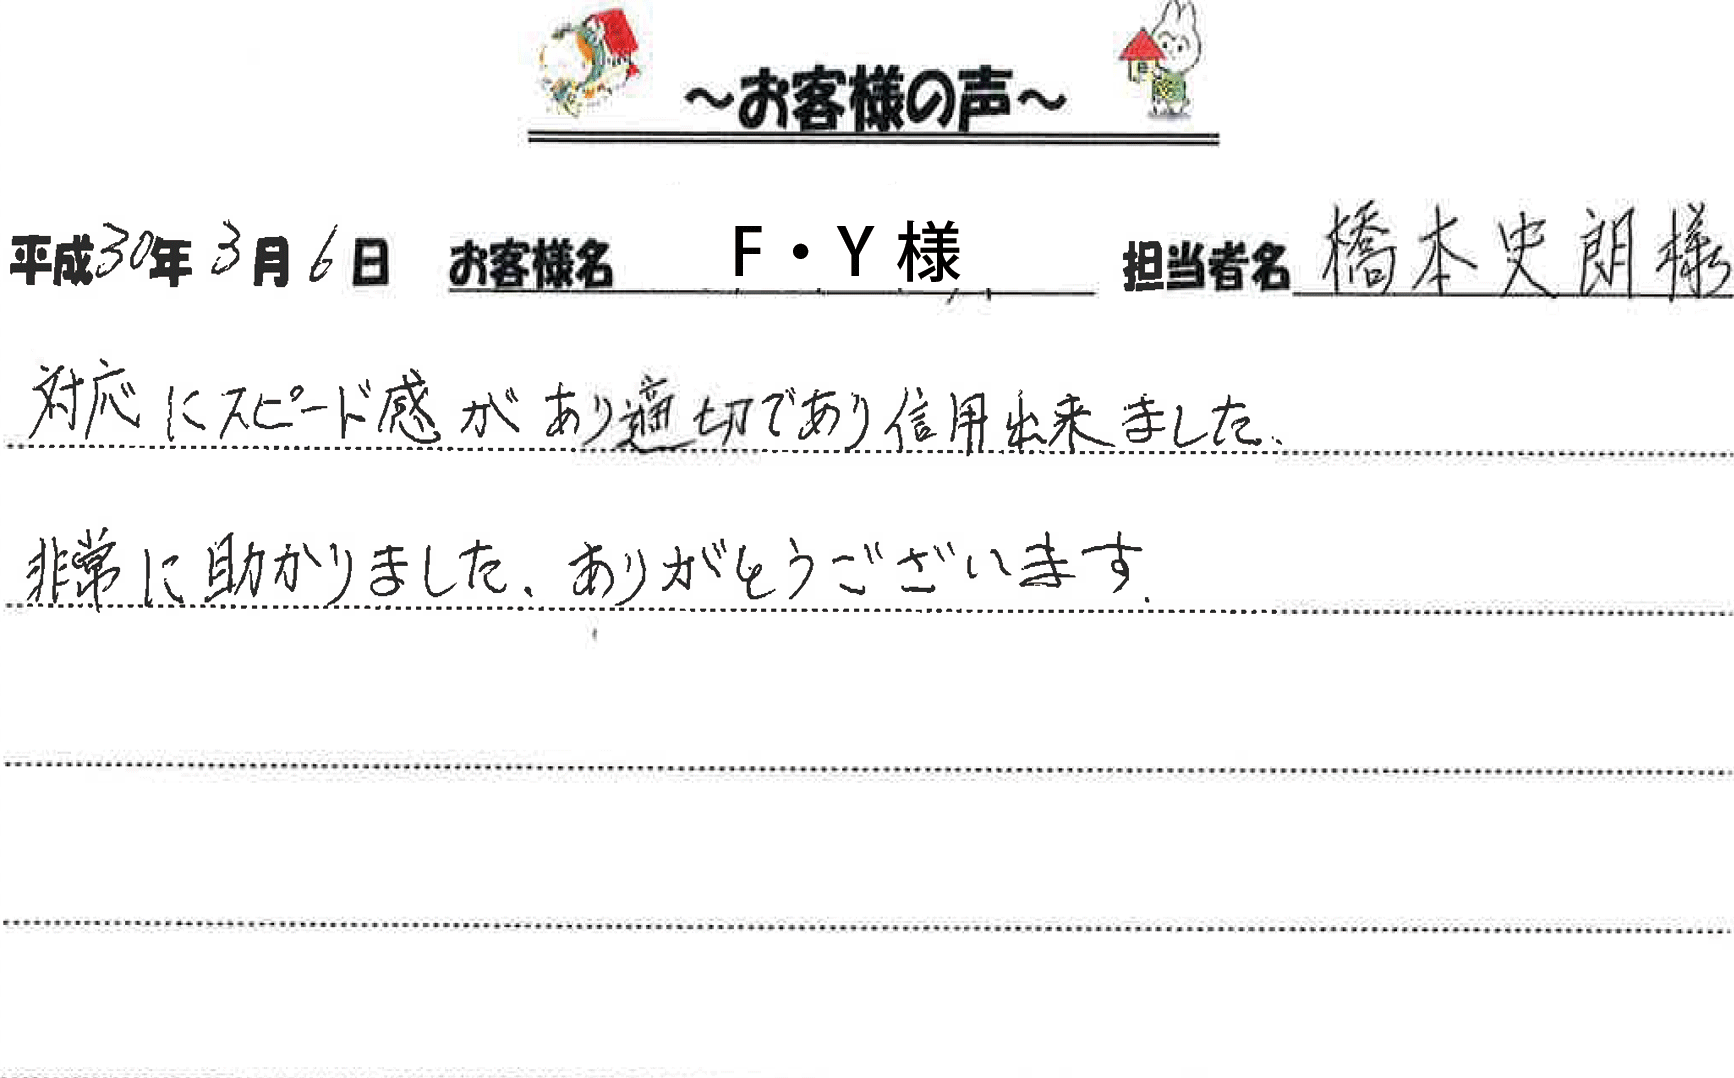 ～お客様の声～
平成30年3月6日 お客様名 F・Y様 担当者名 橋本史朗様
対応にスピード感があり適切であり信用出来ました、
非常に助かりました、ありがとうございます.